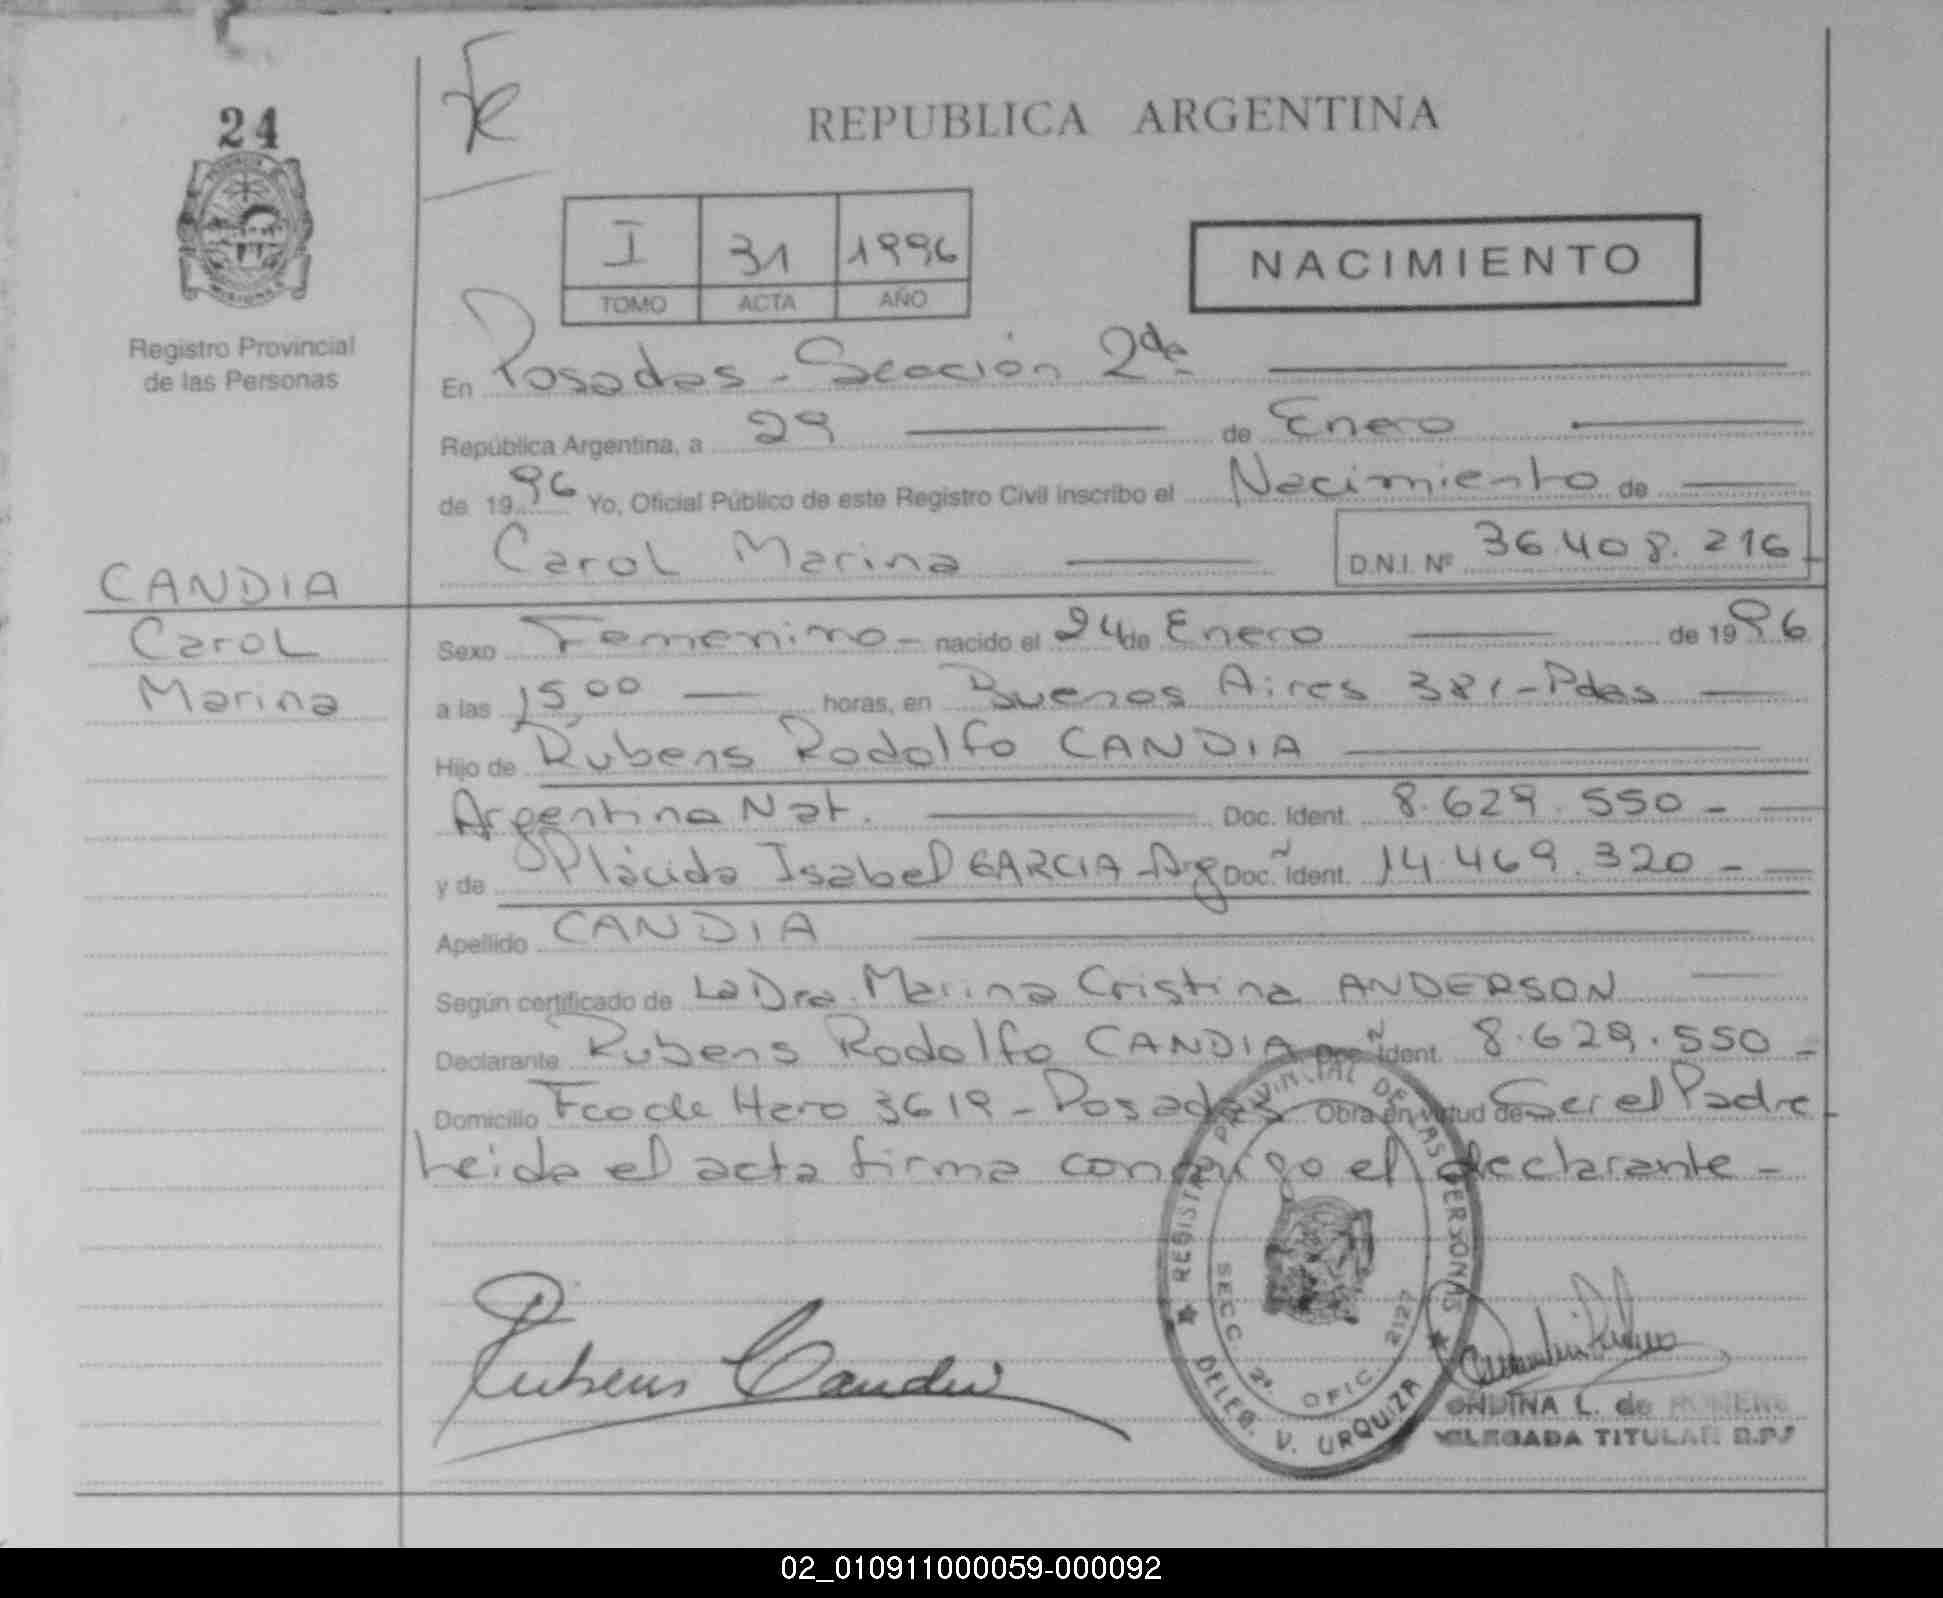 24
Fe
REPUBLICA ARGENTINA
I 31 1996
TOMO ACTA AÑO
NACIMIENTO
MISIONES
Registro Provincial
de las Personas
En Posadas - Sección 2da
República Argentina, a 29 de Enero
de 1996 Yo, Oficial Público de este Registro Civil inscribo el Nacimiento de
Carol Marina D.N.I. Nº 36.408.216
CANDIA
Carol
Marina
Sexo Femenino - nacido el 24 de Enero de 1996
a las 15,00 horas, en Buenos Aires 381 - Pdas
Hijo de Rubens Rodolfo CANDIA
Argentina Nat. Doc. Ident. 8.629.550 -
y de Plácida Isabel GARCIA - Arg Doc. Ident. 14.469.320 -
Apellido CANDIA
Según certificado de La Dra. Marina Cristina ANDERSON
Declarante Rubens Rodolfo CANDIA Doc. Ident. 8.629.550 -
Domicilio Fco de Haro 3619 - Posadas Obra en virtud de Ser el Padre
Leida el acta firma conmigo el declarante -
REGISTRO PROVINCIAL DE LAS PERSONAS
SECC. 2ª. OFIC. 2127
DELEG. V. URQUIZA
Rubens Candia
ONDINA L. de
DELEGADA TITULAR R.P.
02_010911000059-000092